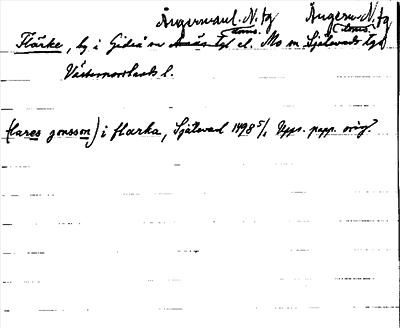 Ångermanl. N. tg Ångerm. N. tg
doms. doms.
Flärke, by i Gideå sn Arnäs tgl el. Mo sn Själevads tgl
Västernorrlands l.
(lares jonsson) i flarka, Själevad 1498 5/1 Upps. papp. orig.